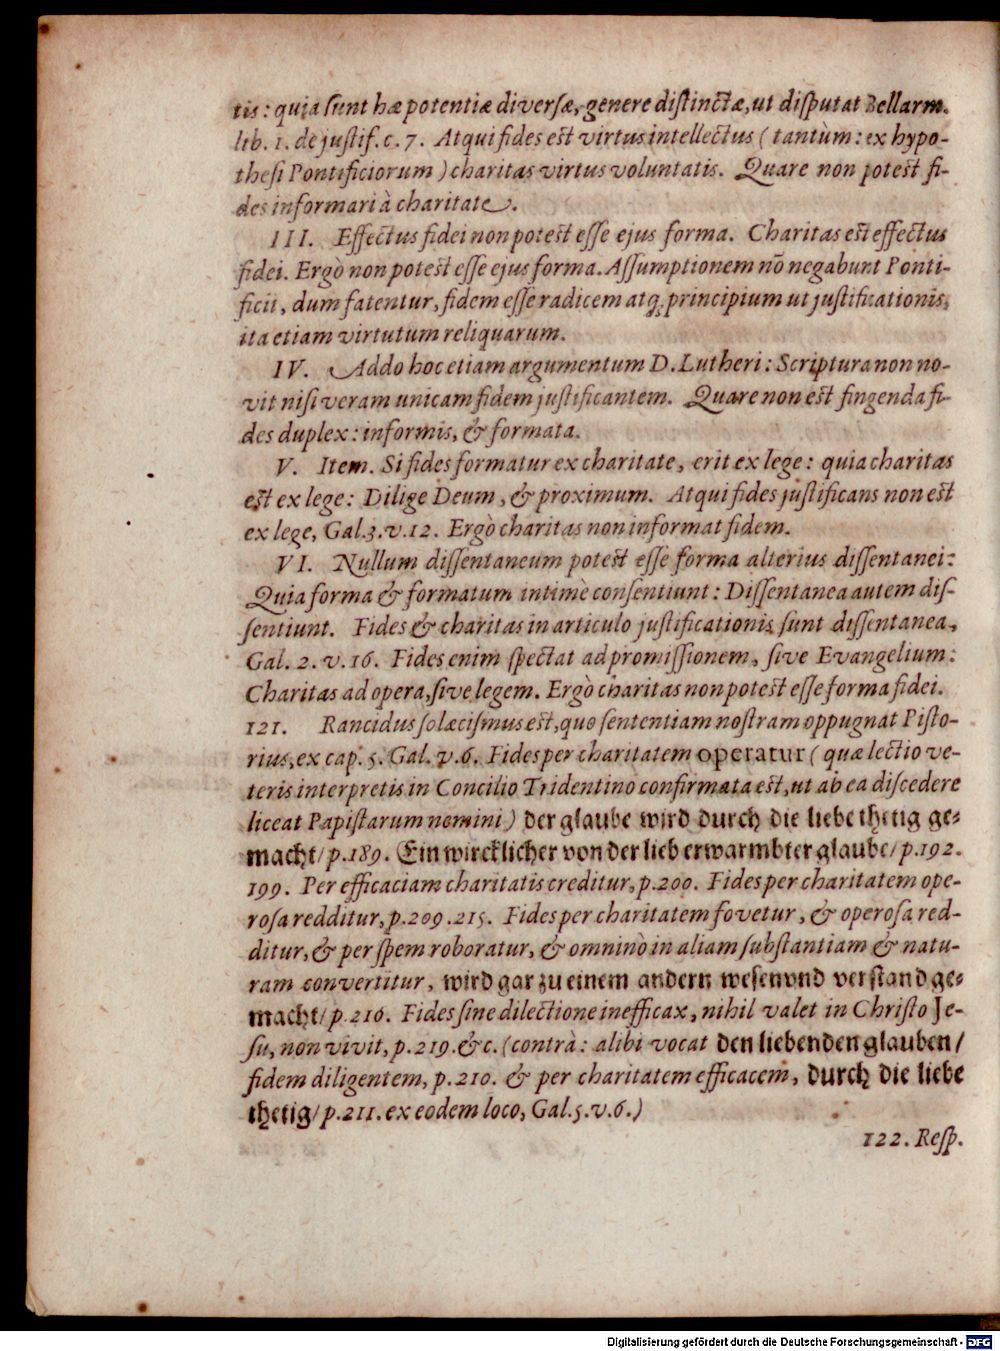 tis: quia sunt hæ potentiæ diversæ, genere distinctæ, ut disputat Bellarm.
lib. 1. de justif. c. 7. Atqui fides est virtus intellectus (tantùm: ex hypo-
thesi Pontificiorum) charitas virtus voluntatis. Quare non potest fi-
des informari à charitate.
III. Effectus fidei non potest esse ejus forma. Charitas est effectus
fidei. Ergò non potest esse ejus forma. Assumptionem nō negabunt Ponti-
ficii, dum fatentur, fidem esse radicem atq; principium ut justificationis,
ita etiam virtutum reliquarum.
IV. Addo hoc etiam argumentum D. Lutheri: Scriptura non no-
vit nisi veram unicam fidem justificantem. Quare non est fingenda fi-
des duplex: informis, & formata.
V. Item. Si fides formatur ex charitate, erit ex lege: quia charitas
est ex lege: Dilige Deum, & proximum. Atqui fides justificans non est
ex lege, Gal.3.v.12. Ergò charitas non informat fidem.
VI. Nullum dissentaneum potest esse forma alterius dissentanei:
Quia forma & formatum intimè consentiunt: Dissentanea autem dis-
sentiunt. Fides & charitas in articulo justificationis sunt dissentanea,
Gal. 2. v. 16. Fides enim spectat ad promissionem, sive Evangelium:
Charitas ad opera, sive legem. Ergò charitas non potest esse forma fidei.
121. Rancidus solæcismus est, quo sententiam nostram oppugnat Pisto-
rius, ex cap. 5. Gal. v. 6. Fides per charitatem operatur (quæ lectio ve-
teris interpretis in Concilio Tridentino confirmata est, ut ab ea discedere
liceat Papistarum nemini) der glaube wird durch die liebe thetig ge-
macht/ p.189. Ein wircklicher von der lieb erwarmbter glaube/ p.192.
199. Per efficaciam charitatis creditur, p.200. Fides per charitatem ope-
rosa redditur, p.209.215. Fides per charitatem fovetur, & operosa red-
ditur, & per spem roboratur, & omninò in aliam substantiam & natu-
ram convertitur, wird gar zu einem andern wesen vnd verstand ge-
macht/ p.216. Fides sine dilectione inefficax, nihil valet in Christo Je-
su, non vivit, p.219.&c. (contrà: alibi vocat den liebenden glauben/
fidem diligentem, p.210. & per charitatem efficacem, durch die liebe
thetig/ p.211. ex eodem loco, Gal.5.v.6.)
122. Resp.
Digitalisierung gefördert durch die Deutsche Forschungsgemeinschaft - DFG